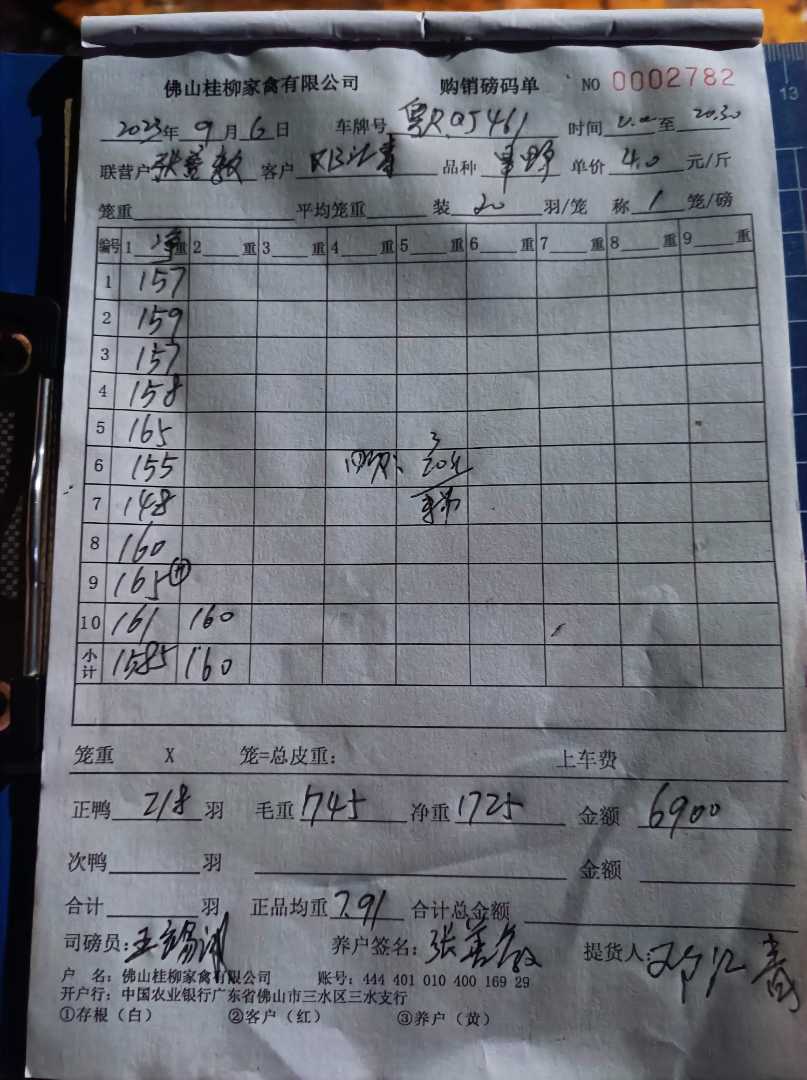 佛山桂柳家禽有限公司 购销磅码单 NO 0002782
2023年 9月 6日 车牌号 粤R05461 时间 至 20.30
联营户 张善敏 客户 邓汇青 品种 单价 4.0 元/斤
笼重 平均笼重 装 20 羽/笼 称 1 笼/磅
编号 1 净 重 2 重 3 重 4 重 5 重 6 重 7 重 8 重 9 重
1 157
2 159
3 157
4 158
5 165
6 155
7 148
8 160
9 165
10 161 160
小计 1585 160
笼重 X 笼=总皮重: 上车费
正鸭 218 羽 毛重 1745 净重 1725 金额 6900
次鸭 羽 金额
合计 羽 正品均重 7.91 合计总金额
司磅员: 王锡 养户签名: 张善敏 提货人: 邓汇青
户 名: 佛山桂柳家禽有限公司 账号: 444 401 010 400 169 29
开户行: 中国农业银行广东省佛山市三水区三水支行
①存根（白） ②客户（红） ③养户（黄）
13